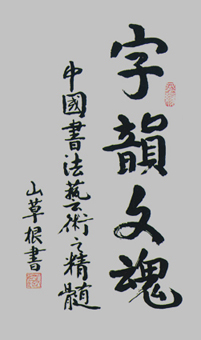 字韻文魂
中國書法藝術之精髓
山草根書